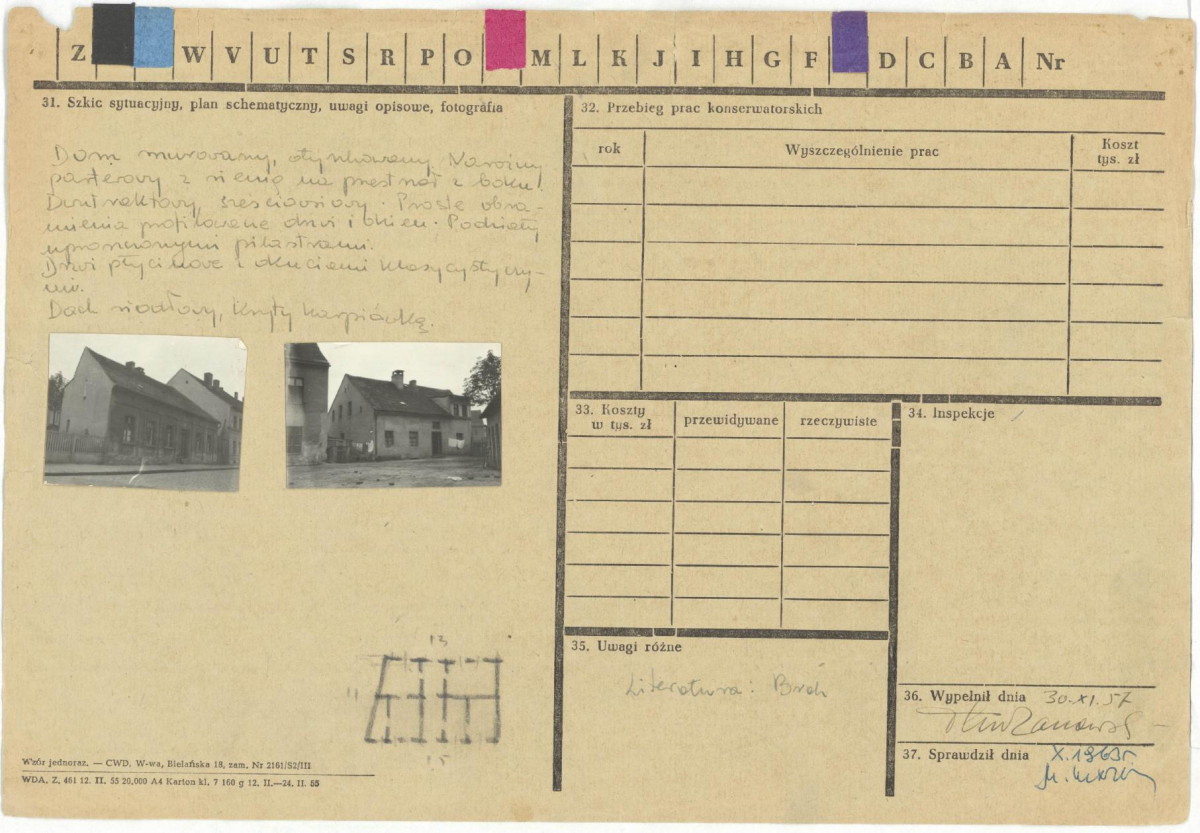 Z W V U T S R P O M L K J I H G F D C B A Nr
31. Szkic sytuacyjny, plan schematyczny, uwagi opisowe, fotografia
Dom murowany, otynkowany. Narożny
parterowy z sienią na przestrzał z boku.
Dwutraktowy, sześcioosiowy. Proste obra-
mienia profilowane drzwi i okien. Podziały
uproszczonymi pilastrami.
Drzwi płycinowe z okuciami klasycystyczny-
mi.
Dach siodłowy, kryty karpiówką.
13
11
15
Wzór jednoraz. — CWD. W-wa, Bielańska 18, zam. Nr 2161/S2/III
WDA. Z. 461 12. II. 55 20.000 A4 Karton kl. 7 160 g 12. II.—24. II. 55
32. Przebieg prac konserwatorskich
rok Wyszczególnienie prac Koszt
tys. zł
33. Koszty
w tys. zł przewidywane rzeczywiste
34. Inspekcje
35. Uwagi różne
Literatura:
36. Wypełnił dnia 30.XI.57
37. Sprawdził dnia X.1963r.